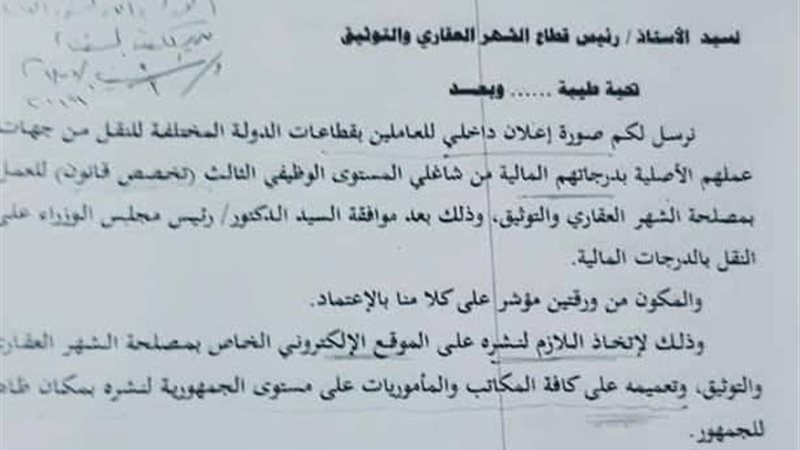 لسيد الأستاذ / رئيس قطاع الشهر العقاري والتوثيق
تحية طيبة ...... وبعد
نرسل لكم صورة إعلان داخلي للعاملين بقطاعات الدولة المختلفة للنقل من جهات
عملهم الأصلية بدرجاتهم المالية من شاغلي المستوى الوظيفي الثالث (تخصص قانون) للعمل
بمصلحة الشهر العقاري والتوثيق، وذلك بعد موافقة السيد الدكتور/ رئيس مجلس الوزراء على
النقل بالدرجات المالية.
والمكون من ورقتين مؤشر على كلا منا بالإعتماد.
وذلك لإتخاذ اللازم لنشره على الموقع الإلكتروني الخاص بمصلحة الشهر العقاري
والتوثيق، وتعميمه على كافة المكاتب والمأموريات على مستوى الجمهورية لنشره بمكان
للجمهور.